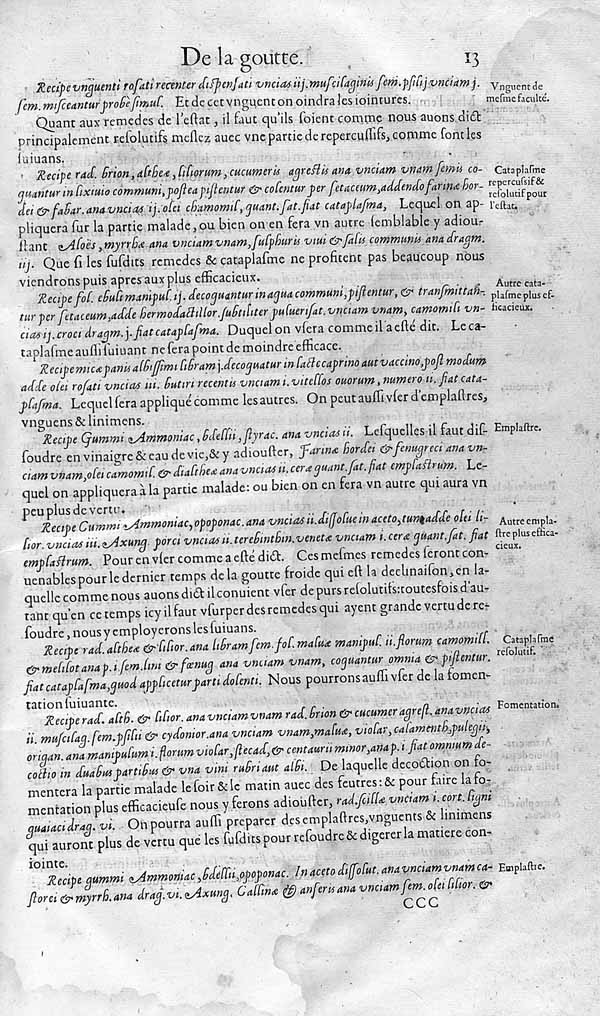 De la goutte. 13
Recipe vnguenti rosati recenter dispensati vncias iij. muscilaginis sem. psilij vnciam j.
sem. misceantur probè simul. Et de cet vnguent on oindra les iointures.
Vnguent de
mesme faculté.
Quant aux remedes de l'estat, il faut qu'ils soient comme nous auons dict
principalement resolutifs meslez auec vne partie de repercussifs, comme sont les
suiuans.
Recipe rad. brion, altheæ, liliorum, cucumeris agrestis ana vnciam vnam semis co-
quantur in lixiuio communi, postea pistentur & colentur per setaceum, addendo farinæ hor-
dei & fabar. ana vncias ij. olei chamomil, quant. sat. fiat cataplasma, Lequel on ap-
pliquera sur la partie malade, ou bien on en fera vn autre semblable y adiou-
stant Aloës, myrrhæ ana vnciam vnam, sulphuris viui & salis communis ana dragm.
iij. Que si les susdits remedes & cataplasme ne profitent pas beaucoup nous
viendrons puis apres aux plus efficacieux.
Cataplasme
repercussif &
resolutif pour
l'estat.
Recipe fol. ebuli manipul. ij. decoquantur in aqua communi, pistentur, & transmittan-
tur per setaceum, adde hermodactillor. subtiliter puluerisat. vnciam vnam, camomili vn-
cias ij. croci dragm. j. fiat cataplasma. Duquel on vsera comme il a esté dit. Le ca-
taplasme aussi suiuant ne sera point de moindre efficace.
Autre cata-
plasme plus ef-
ficacieux.
Recipe micæ panis albissimi libram j. decoquatur in lacte caprino aut vaccino, post modum
adde olei rosati vncias iii. butiri recentis vnciam i. vitellos ouorum, numero ii. fiat cata-
plasma. Lequel sera appliqué comme les autres. On peut aussi vser d'emplastres,
vnguens & linimens.
Recipe Gummi Ammoniac, bdellii, styrac. ana vncias ii. Lesquelles il faut dis-
soudre en vinaigre & eau de vie, & y adiouster, Farinæ hordei & fenugreci ana vn-
ciam vnam, olei camomil. & dialtheæ ana vncias ii. ceræ quant. sat. fiat emplastrum. Le-
quel on appliquera à la partie malade: ou bien on en fera vn autre qui aura vn
peu plus de vertu.
Emplastre.
Recipe Gummi Ammoniac, opoponac. ana vncias ii. dissolue in aceto, tum adde olei li-
lior. vncias iii. Axung. porci vncias ii. terebinthin. venetæ vnciam i. ceræ quant. sat. fiat
emplastrum. Pour en vser comme a esté dict. Ces mesmes remedes seront con-
uenables pour le dernier temps de la goutte froide qui est la declinaison, en la-
quelle comme nous auons dict il conuient vser de purs resolutifs: toutesfois d'au-
tant qu'en ce temps icy il faut vsurper des remedes qui ayent grande vertu de re-
soudre, nous y employerons les suiuans.
Autre empla-
stre plus effica-
cieux.
Recipe rad. altheæ & lilior. ana libram sem. fol. maluæ manipul. ii. florum camomill.
& melilot ana p. i. sem. lini & fœnug ana vnciam vnam, coquantur omnia & pistentur.
fiat cataplasma, quod applicetur parti dolenti. Nous pourrons aussi vser de la fomen-
tation suiuante.
Cataplasme
resolutif.
Recipe rad. alth. & lilior. ana vnciam vnam rad. brion & cucumer agrest. ana vncias
ii. muscilag. sem. psilii & cydonior. ana vnciam vnam, maluæ, violar, calamenth, pulegii,
origan. ana manipulum i. florum violar, stecad, & centaurii minor, ana p. i fiat omnium de-
coctio in duabus partibus & vna vini rubri aut albi. De laquelle decoction on fo-
mentera la partie malade le soir & le matin auec des feutres: & pour faire la fo-
mentation plus efficacieuse nous y ferons adiouster, rad. scillæ vnciam i. cort. ligni
guaiaci drag. vi. On pourra aussi preparer des emplastres, vnguents & linimens
qui auront plus de vertu que les susdits pour resoudre & digerer la matiere con-
iointe.
Fomentation.
Recipe gummi Ammoniac, bdellii, opoponac. In aceto dissolut. ana vnciam vnam ca-
storei & myrrh. ana drag. vi. Axung. Gallinæ & anseris ana vnciam sem. olei lilior. &
Emplastre.
CCC